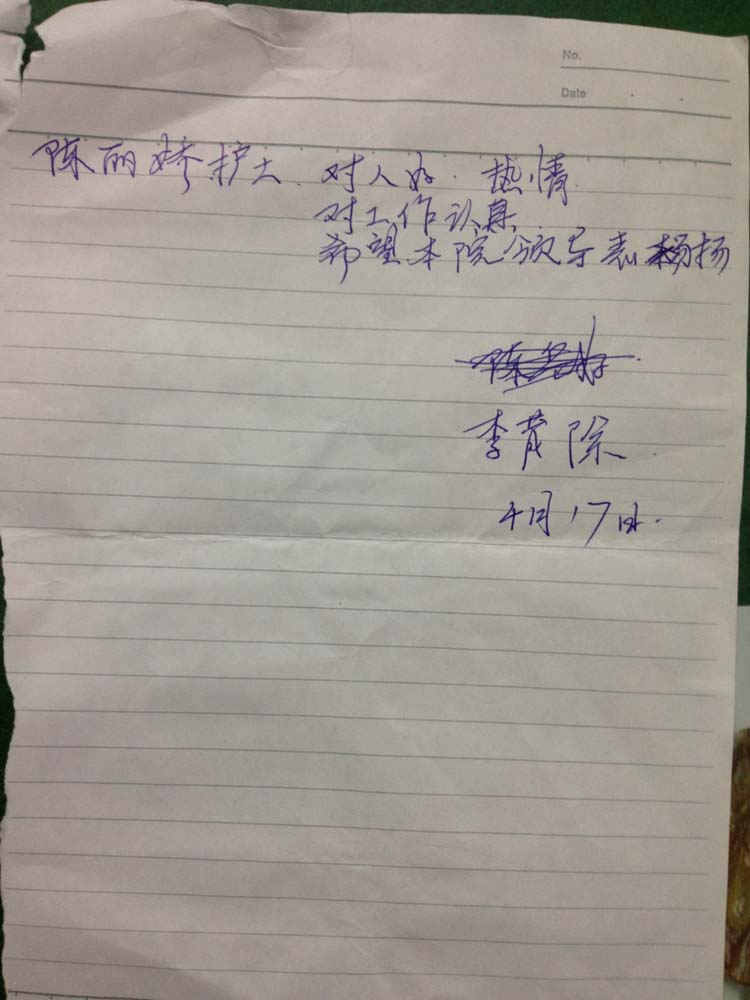 No.
Date
陈丽娇护士 对人好. 热情.
对工作认真
希望本院领导表扬
李茂除
4月17日.